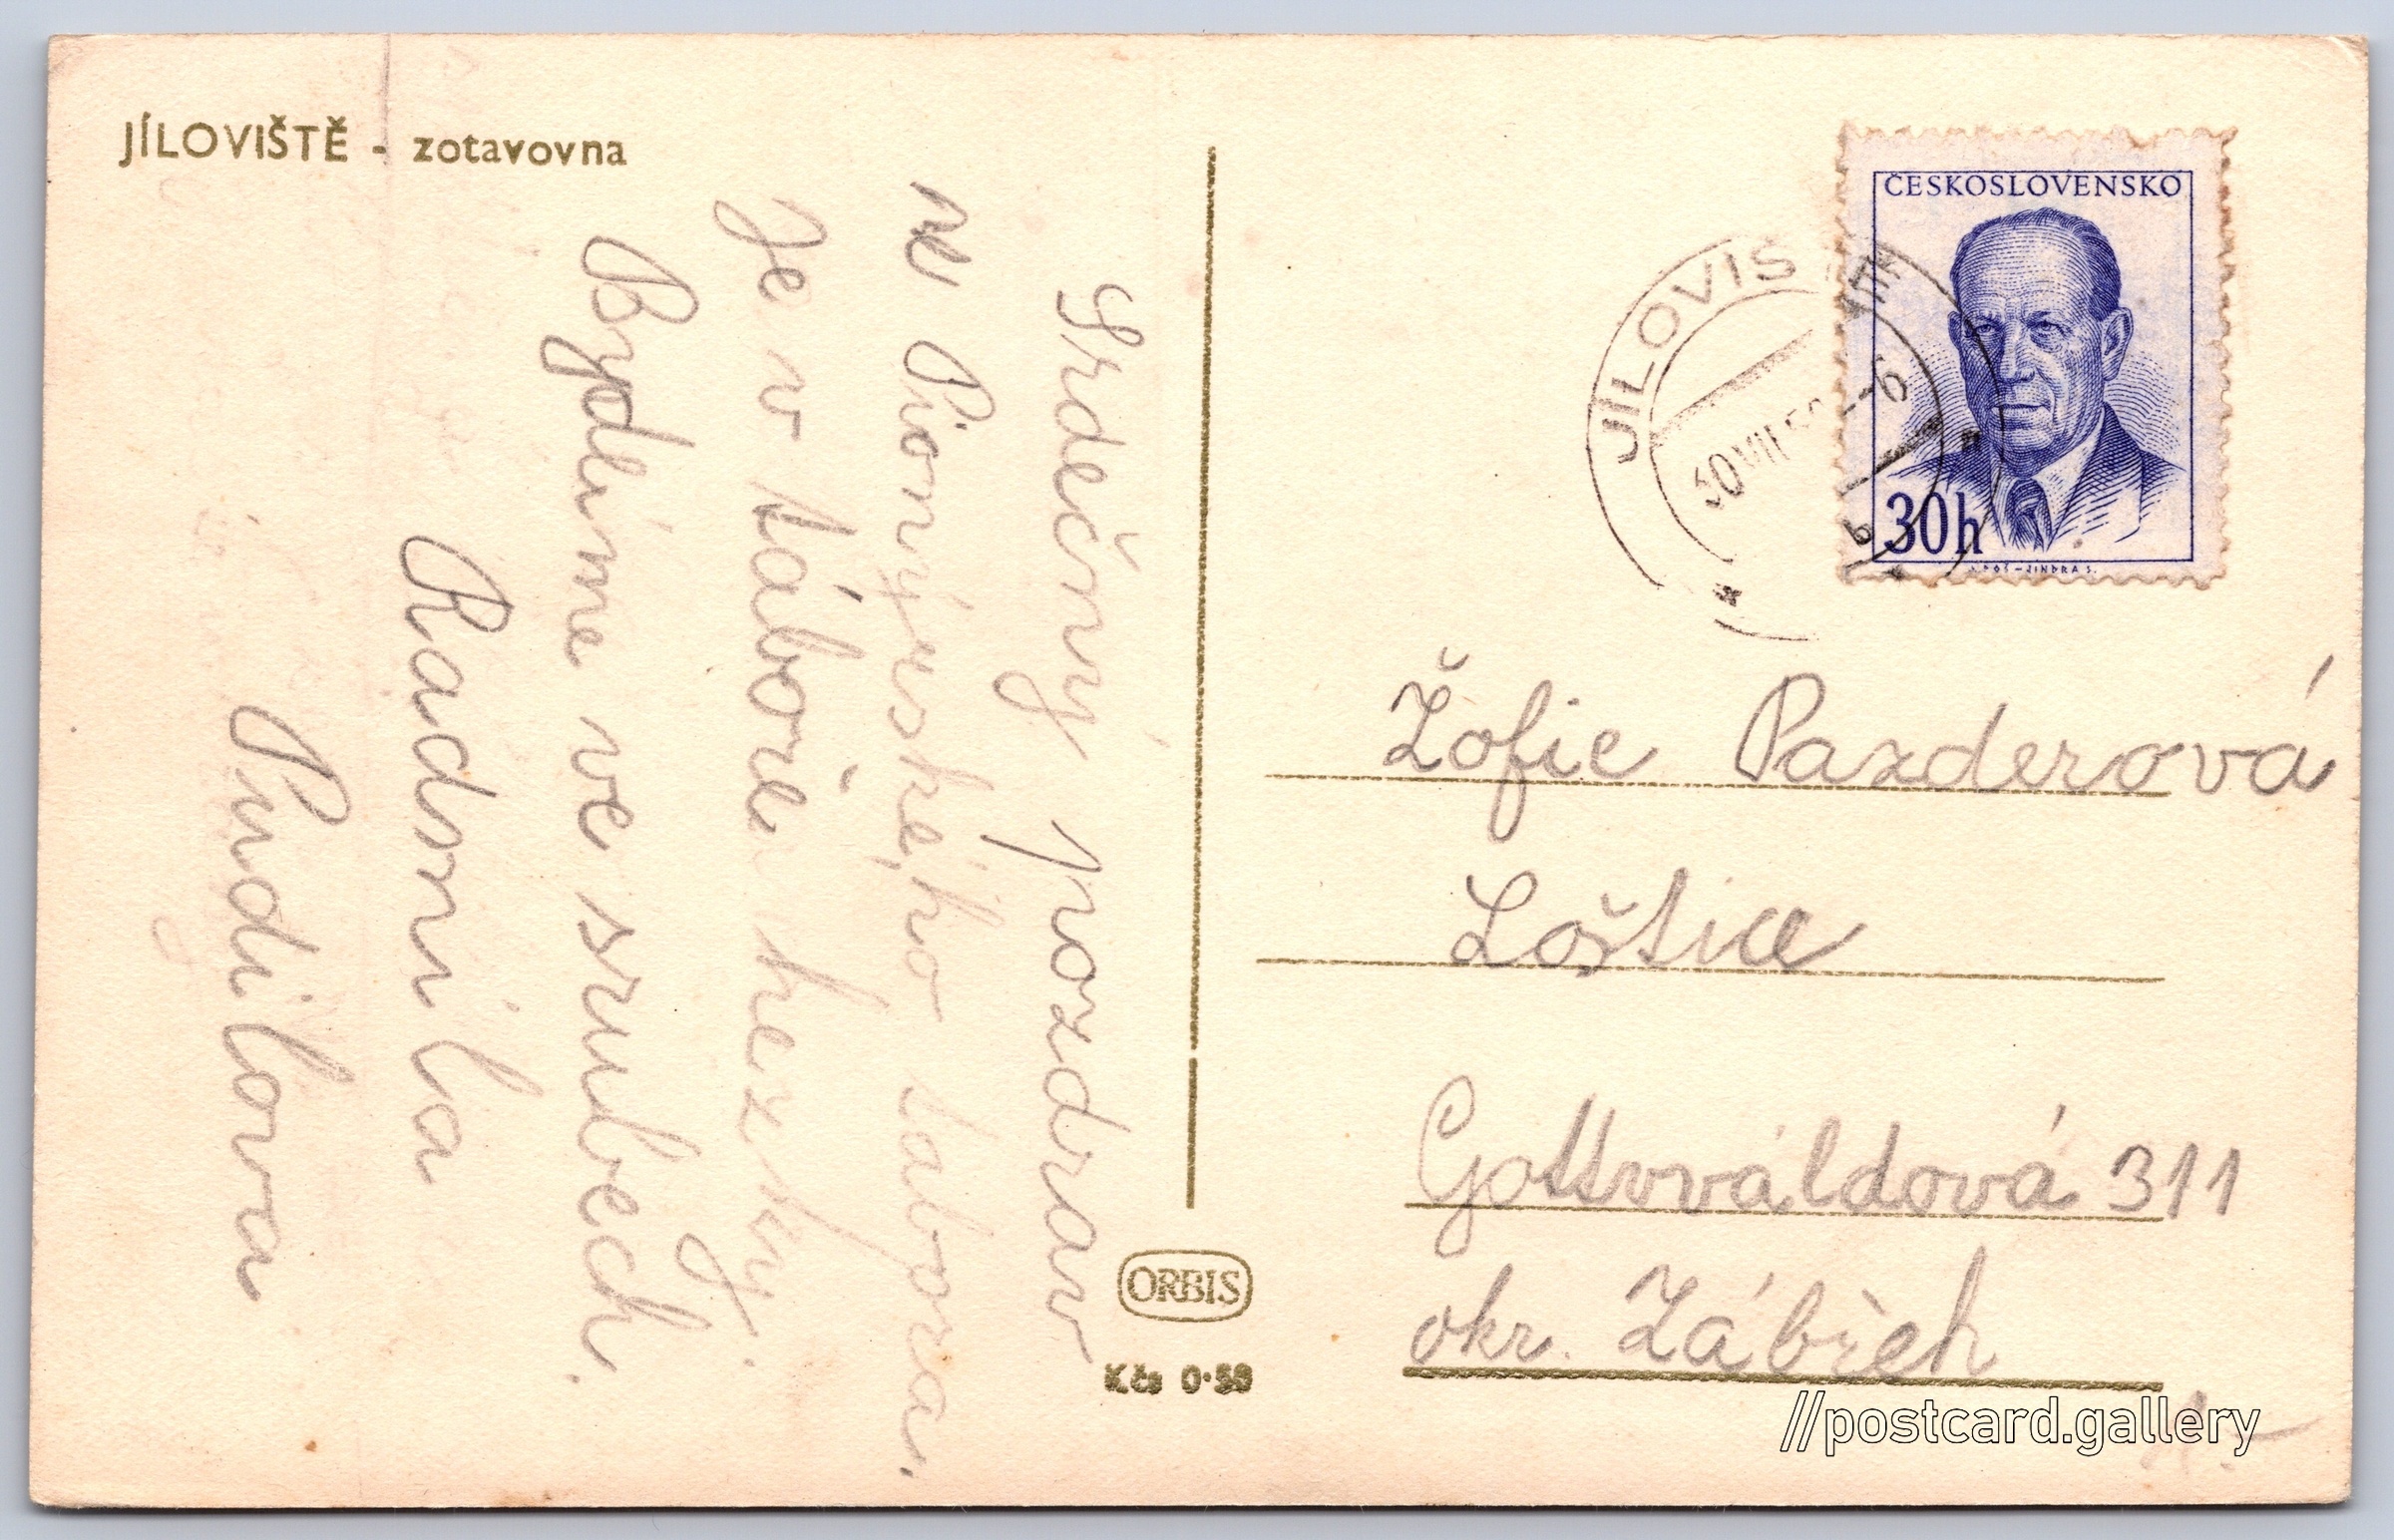 JÍLOVIŠTĚ - zotavovna
Srdečný pozdrav
ze Pionýrského tabora.
Je v táboře hezky.
Bydlíme ve srubech.
Radomila
Pudilova
ČESKOSLOVENSKO
30h
JÍLOVIŠTĚ
Žofie Pazderová
Loštice
Gottwáldová 311
okr. Zábřeh
ORBIS
Kčs 0·50
//postcard.gallery